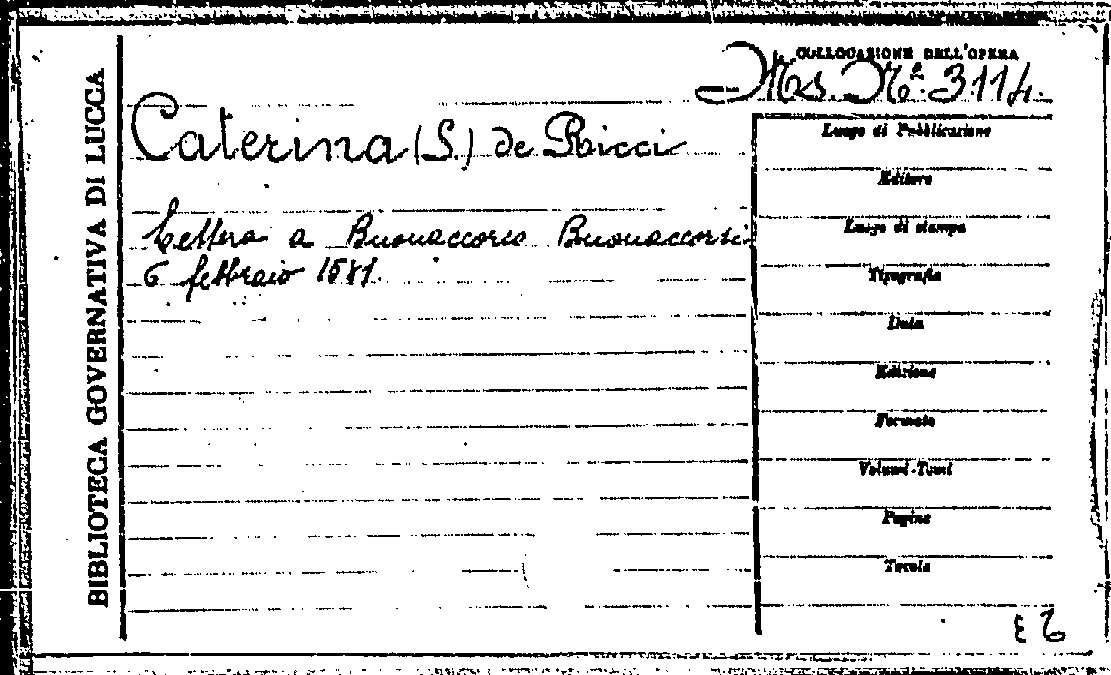 BIBLIOTECA GOVERNATIVA DI LUCCA
COLLOCAZIONE DELL'OPERA
Ms. N.° 3114.
Caterina (S.) de Ricci
Lettera a Buonaccorso Buonaccorsi
6 febbraio 1581.
Luogo di Pubblicazione
Editore
Luogo di stampa
Tipografia
Data
Edizione
Formato
Volumi-Tomi
Pagine
Tavole